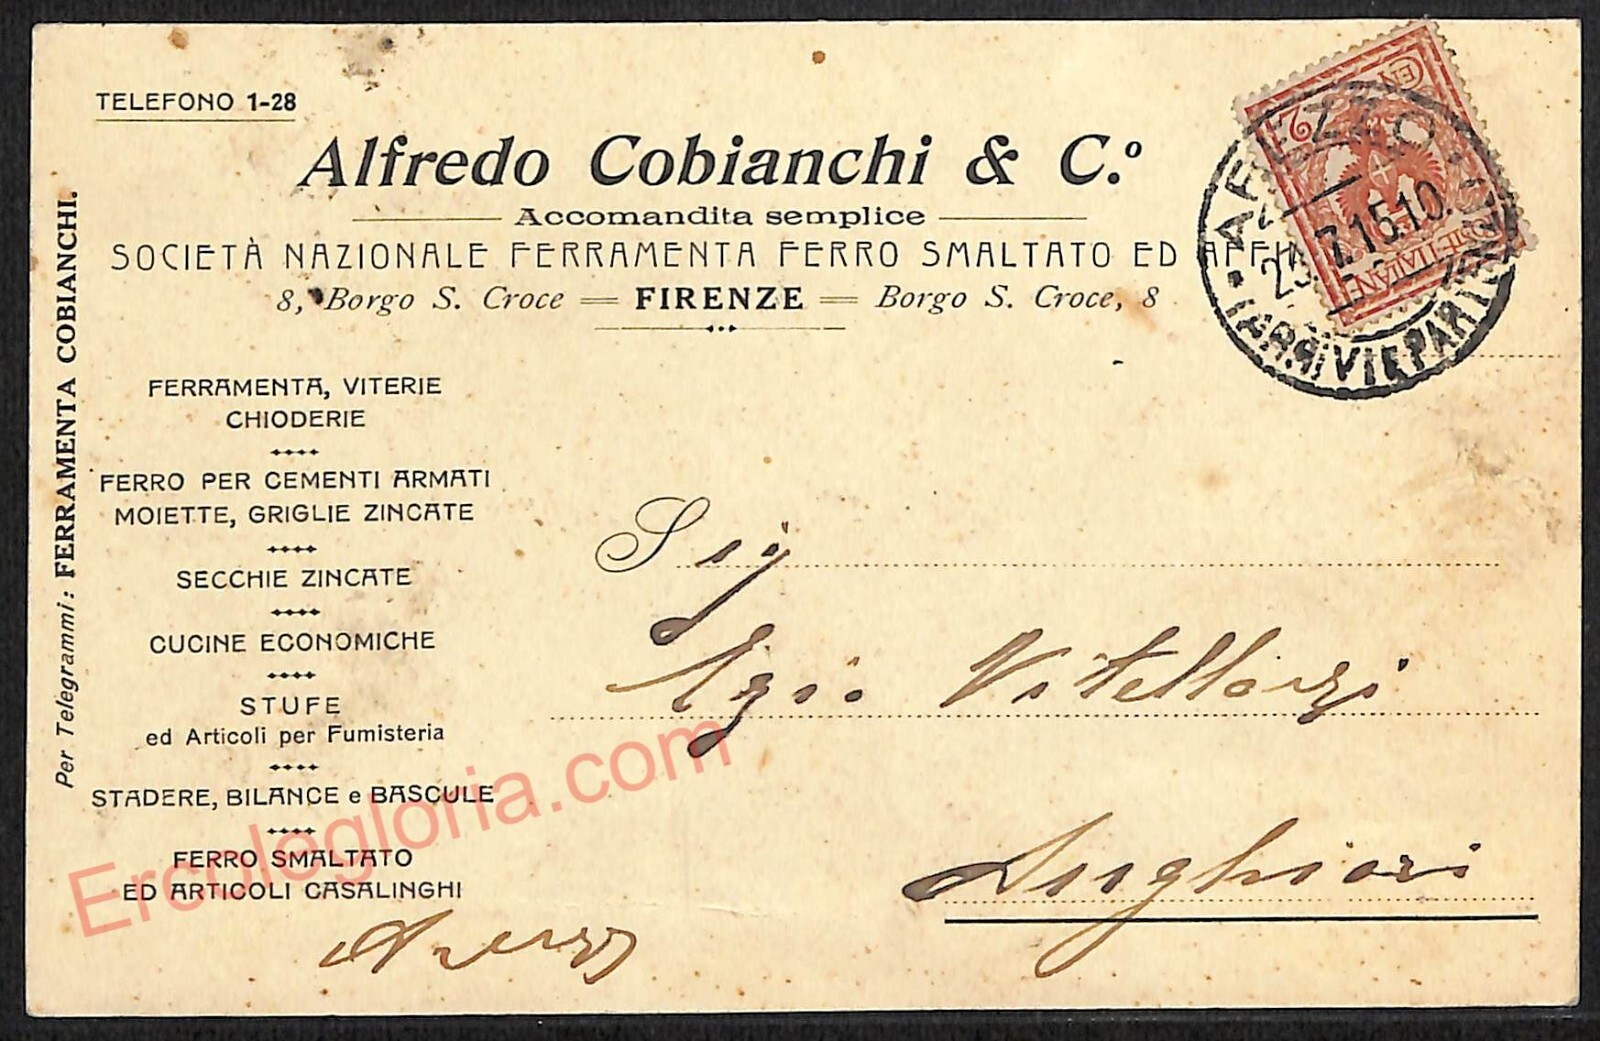 TELEFONO 1-28
Alfredo Cobianchi & C.º
Accomandita semplice
SOCIETÀ NAZIONALE FERRAMENTA FERRO SMALTATO ED AFFI
8, Borgo S. Croce = FIRENZE = Borgo S. Croce, 8
Per Telegrammi: FERRAMENTA COBIANCHI.
FERRAMENTA, VITERIE
CHIODERIE
FERRO PER CEMENTI ARMATI
MOIETTE, GRIGLIE ZINCATE
SECCHIE ZINCATE
CUCINE ECONOMICHE
STUFE
ed Articoli per Fumisteria
STADERE, BILANCE e BASCULE
FERRO SMALTATO
ED ARTICOLI CASALINGHI
Arezzo
Sig
Vitellozzi
Anghiari
AREZZO
15.10
(ARRIVI E PARTENZE)
2
CEN
POSTE ITALIANE
Ercolegloria.com